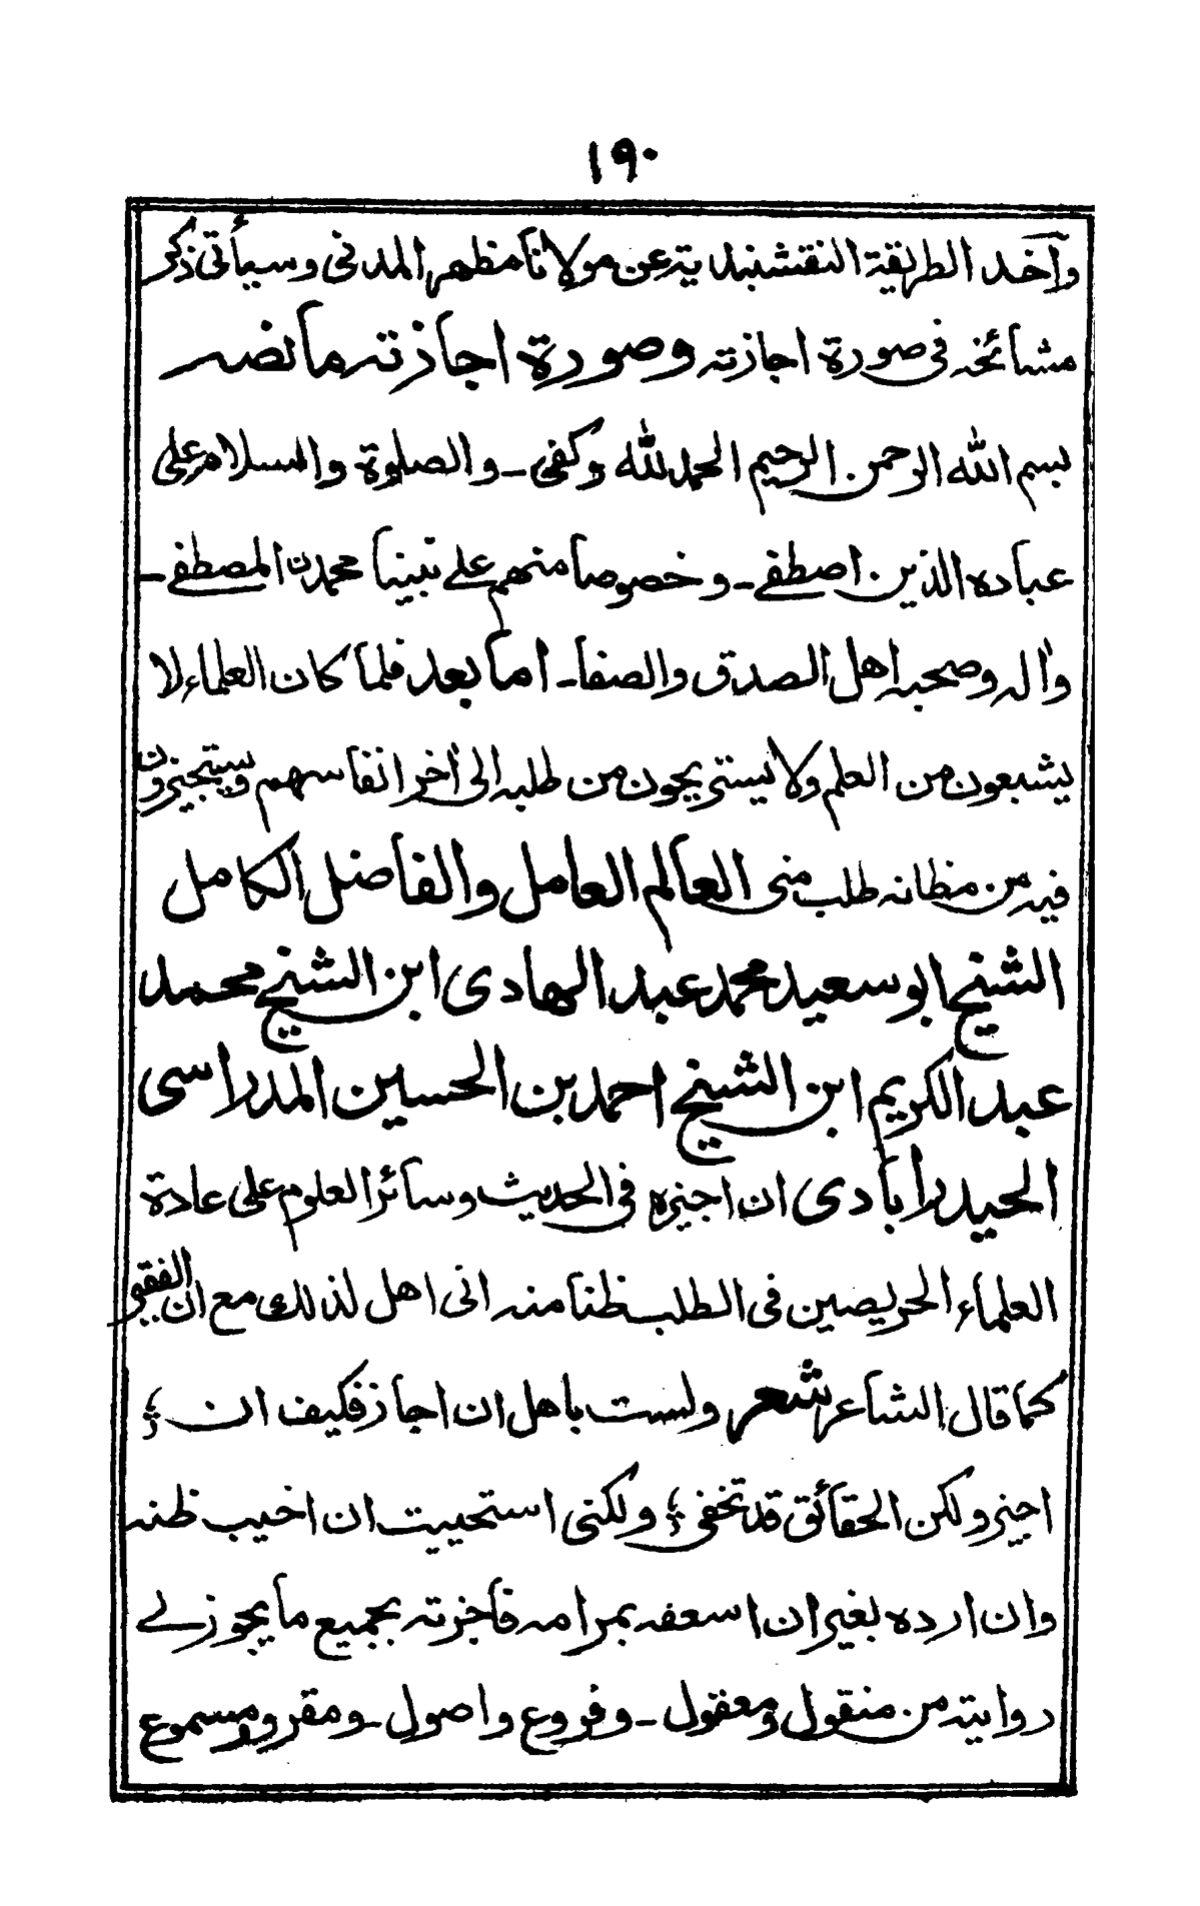 ١٩٠
وآخذ الطريقة النقشبندية عن مولانا مظهر المدني وسيأتي ذكر
مشائخه في صورة اجازته وصورة اجازته ما نصه
بسم الله الرحمن الرحيم الحمد لله وكفى ـ والصلوة والسلام على
عباده الذين اصطفے ـ وخصوصا منهم علے نبينا محمدن المصطفے ـ
واٰله وصحبه اهل الصدق والصفا ـ اما بعد فلما كان العلماء لا
يشبعون من العلم ولا يستريحون من طلبه الى اٰخر انفاسهم ويستجيزون
فيه من مظانه طلب منى العالم العامل والفاضل الكامل
الشيخ ابو سعيد محمد عبد الهادى ابن الشيخ محمد
عبد الكريم ابن الشيخ احمد بن الحسين المدراسى
الحيدراٰبادى ان اجيزه فى الحديث وسائر العلوم على عادة
العلماء الحريصين فى الطلب ظنا منه انى اهل لذلك مع ان الفقير
كما قال الشاعر شعر ولست باهل ان اجاز فكيف ان ؛
اجيز ولكن الحقائق قد تخفى ؛ ولكنى استحييت ان اخيب ظنه
وان ارده بغير ان اسعفه بمرامه فاجزته بجميع ما يجوز لے
روايته من منقول ومعقول ـ وفروع واصول ـ ومقرو ومسموع